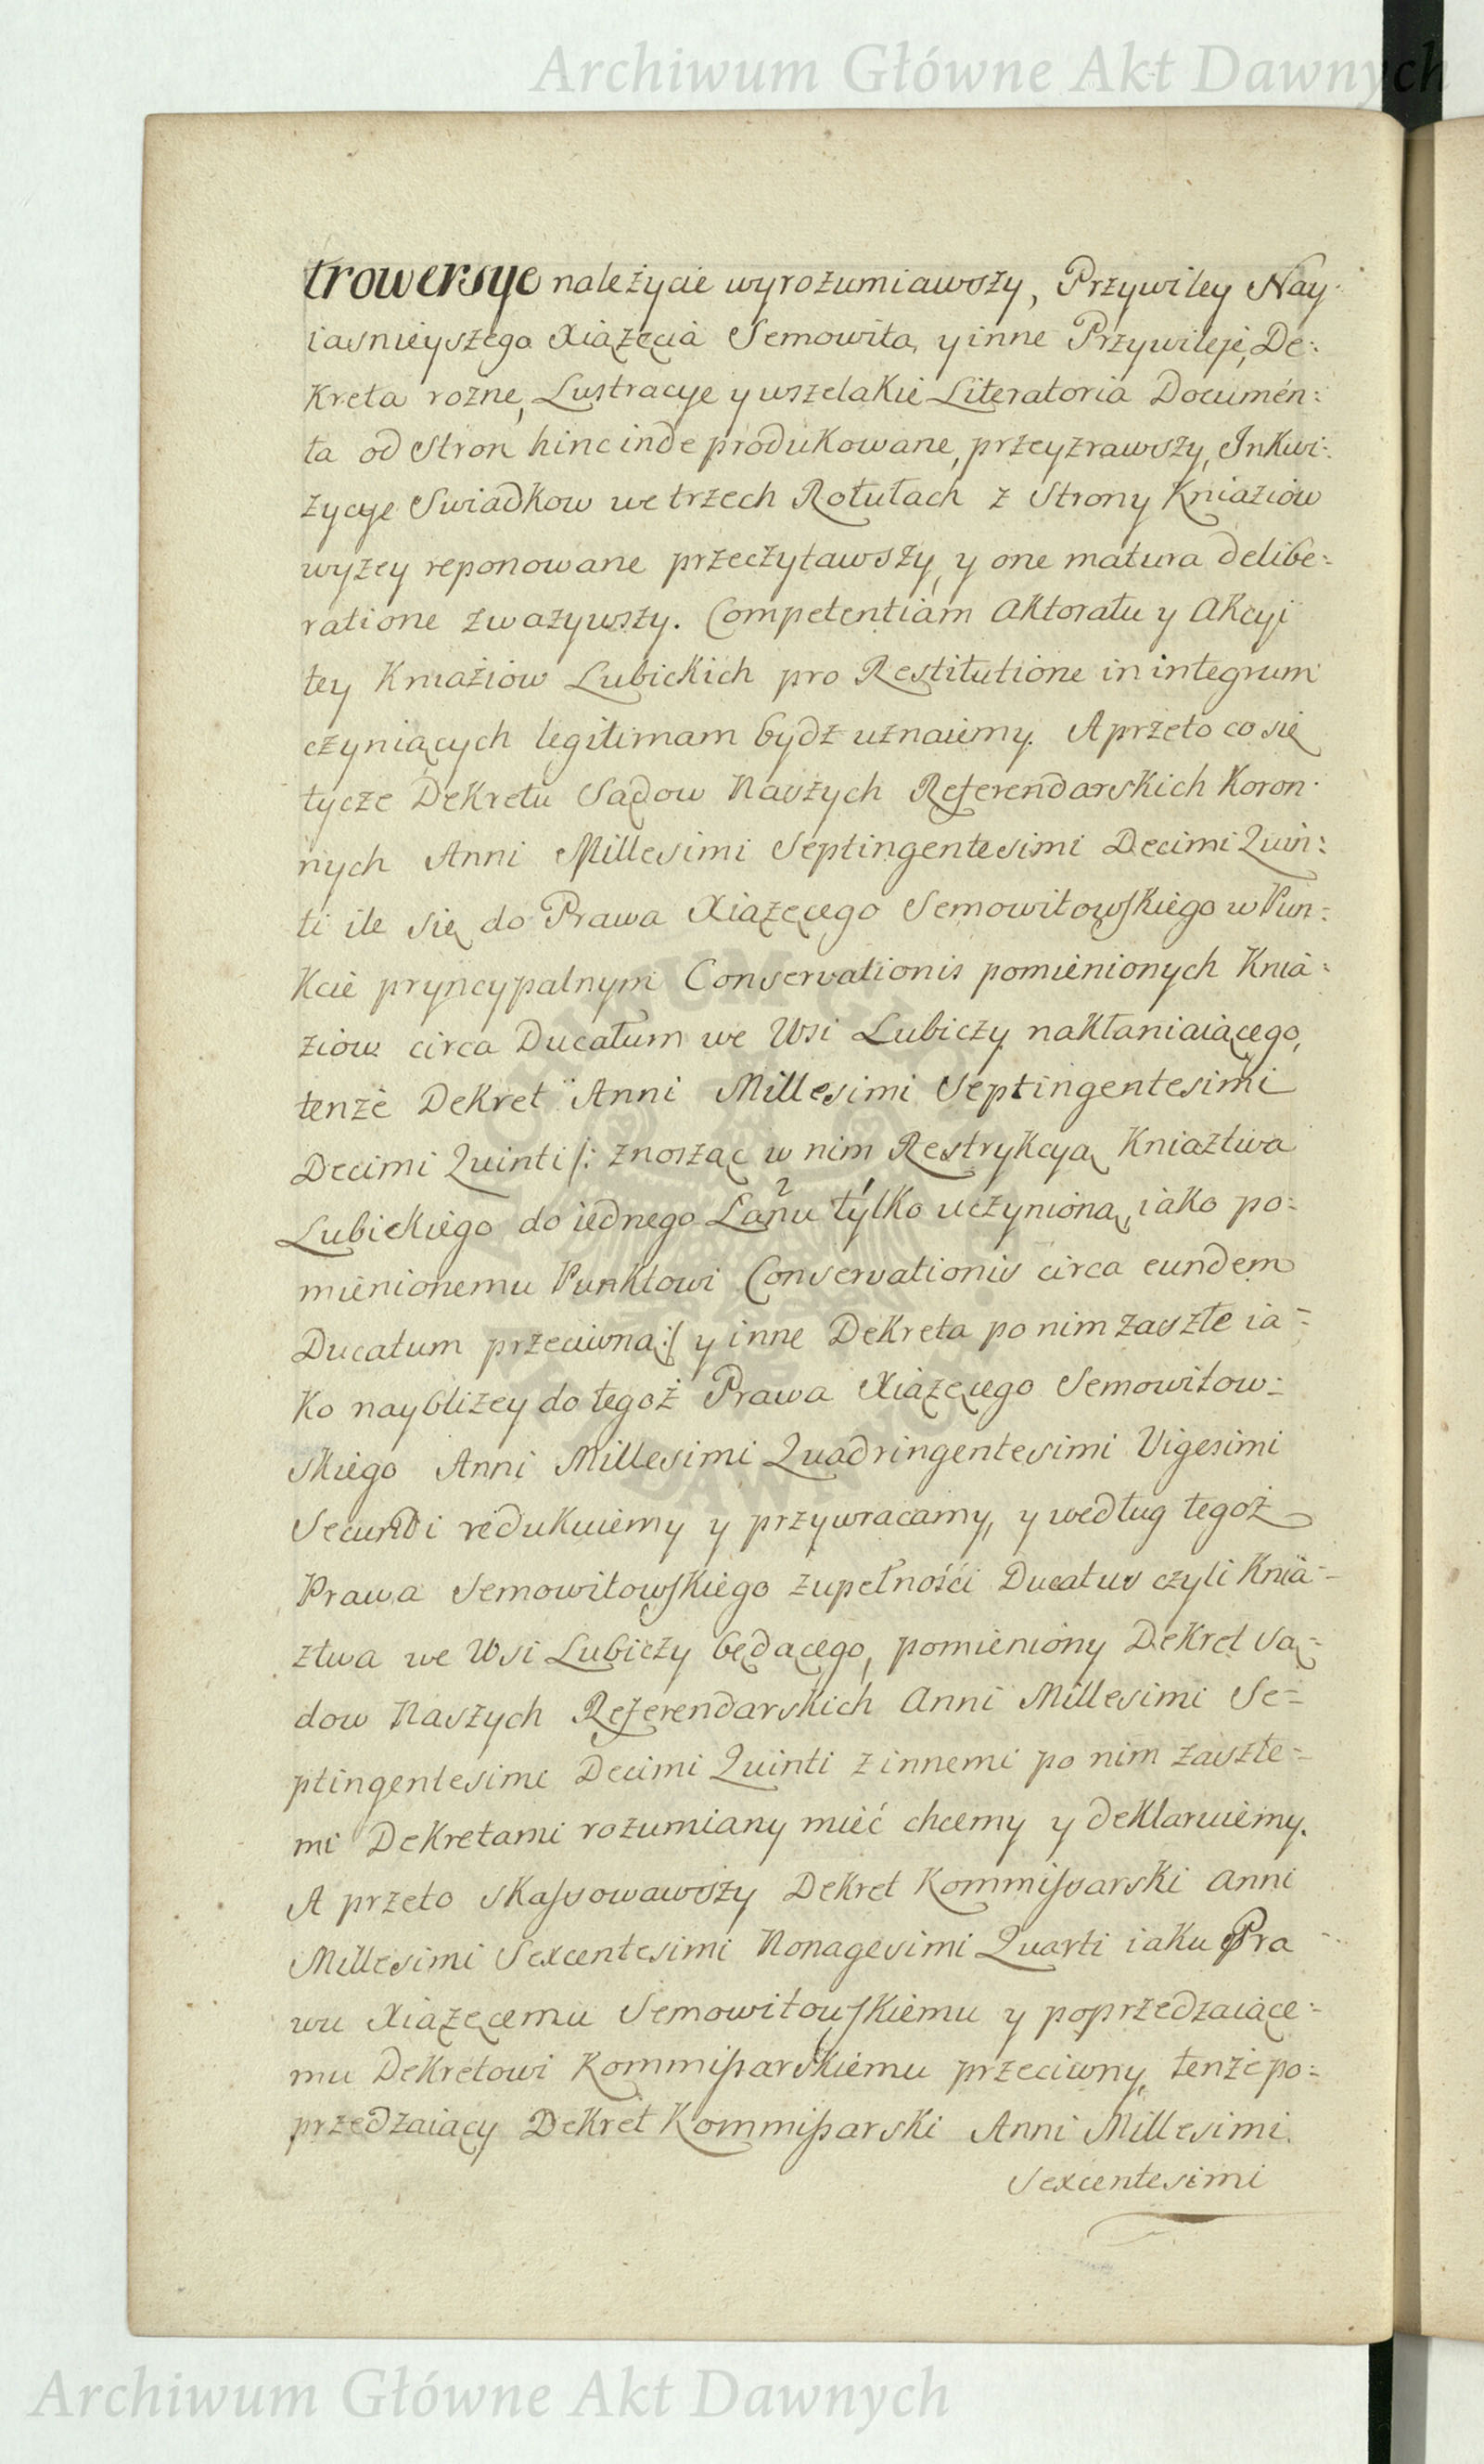 Archiwum Główne Akt Dawnych
trowersye należycie wyrozumiawszy, Przywiley Nay:
iasnieyszego Xiązęcia Semowita, y inne Przywileje, De:
kreta rozne, Lustracye y wszelakie Literatoria Documen:
ta od Stron hinc inde produkowane, przeyzrawszy, Inkwi:
zycye Swiadkow we trzech Rotułach z Strony Kniaziow
wyzey reponowane przeczytawszy, y one matura delibe:
ratione zwazywszy. Competentiam Aktoratu y Akcyi
tey Kniaziow Lubickich pro Restitutione in integrum
czyniących legitimam bydz uznaiemy. A przeto co się
tycze Dekretu Sądow Naszych Referendarskich Koron:
nych Anni Millesimi Septingentesimi Decimi Quin:
ti ile się do Prawa Xiązęcego Semowitowskiego w Pun:
kcie pryncypalnym Conservationis pomienionych Knia:
ziow circa Ducatum we Wsi Lubiczy nakłaniaiącego,
tenże Dekret Anni Millesimi Septingentesimi
Decimi Quinti /: znosząc w nim Restrykcyą Kniaztwa
Lubickiego do iednego Łanu tylko uczynioną, iako po:
mienionemu Punktowi Conservationis circa eundem
Ducatum przeciwną :/ y inne Dekreta po nim zaszłe ia=
ko naybliżey do tegoż Prawa Xiązęcego Semowitow=
skiego Anni Millesimi Quadringentesimi Vigesimi
Secundi redukuiemy y przywracamy, y według tegoż
Prawa Semowitowskiego zupełności Ducatus czyli Knia=
ztwa we Wsi Lubiczy będącego, pomieniony Dekret Są=
dow Naszych Referendarskich Anni Millesimi Se=
ptingentesimi Decimi Quinti z innemi po nim zaszłe=
mi Dekretami rozumiany mieć chcemy y deklaruiemy.
A przeto skassowawszy Dekret Kommissarski Anni
Millesimi Sexcentesimi Nonagesimi Quarti iaku Pra=
wu Xiązęcemu Semowitowskiemu y poprzedzaiące:
mu Dekretowi Kommissarskiemu przeciwny, tenże po:
przedzaiący Dekret Kommissarski Anni Millesimi
Sexcentesimi
Archiwum Główne Akt Dawnych